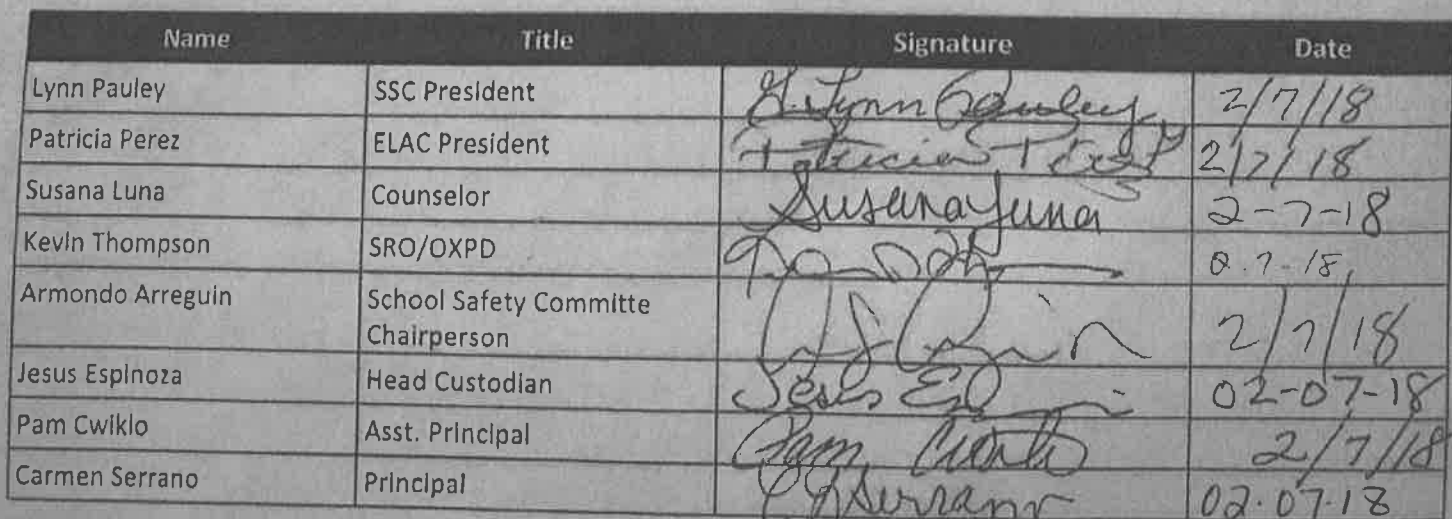 Name Title Signature Date
Lynn Pauley SSC President G. Lynn Pauley 2/7/18
Patricia Perez ELAC President Patricia Perez 2/7/18
Susana Luna Counselor Susana Luna 2-7-18
Kevin Thompson SRO/OXPD
Armondo Arreguin School Safety Committe
Chairperson 2/7/18
Jesus Espinoza Head Custodian Jesus 02-07-18
Pam Cwiklo Asst. Principal Pam 2/7/18
Carmen Serrano Principal Serrano 02.07.18